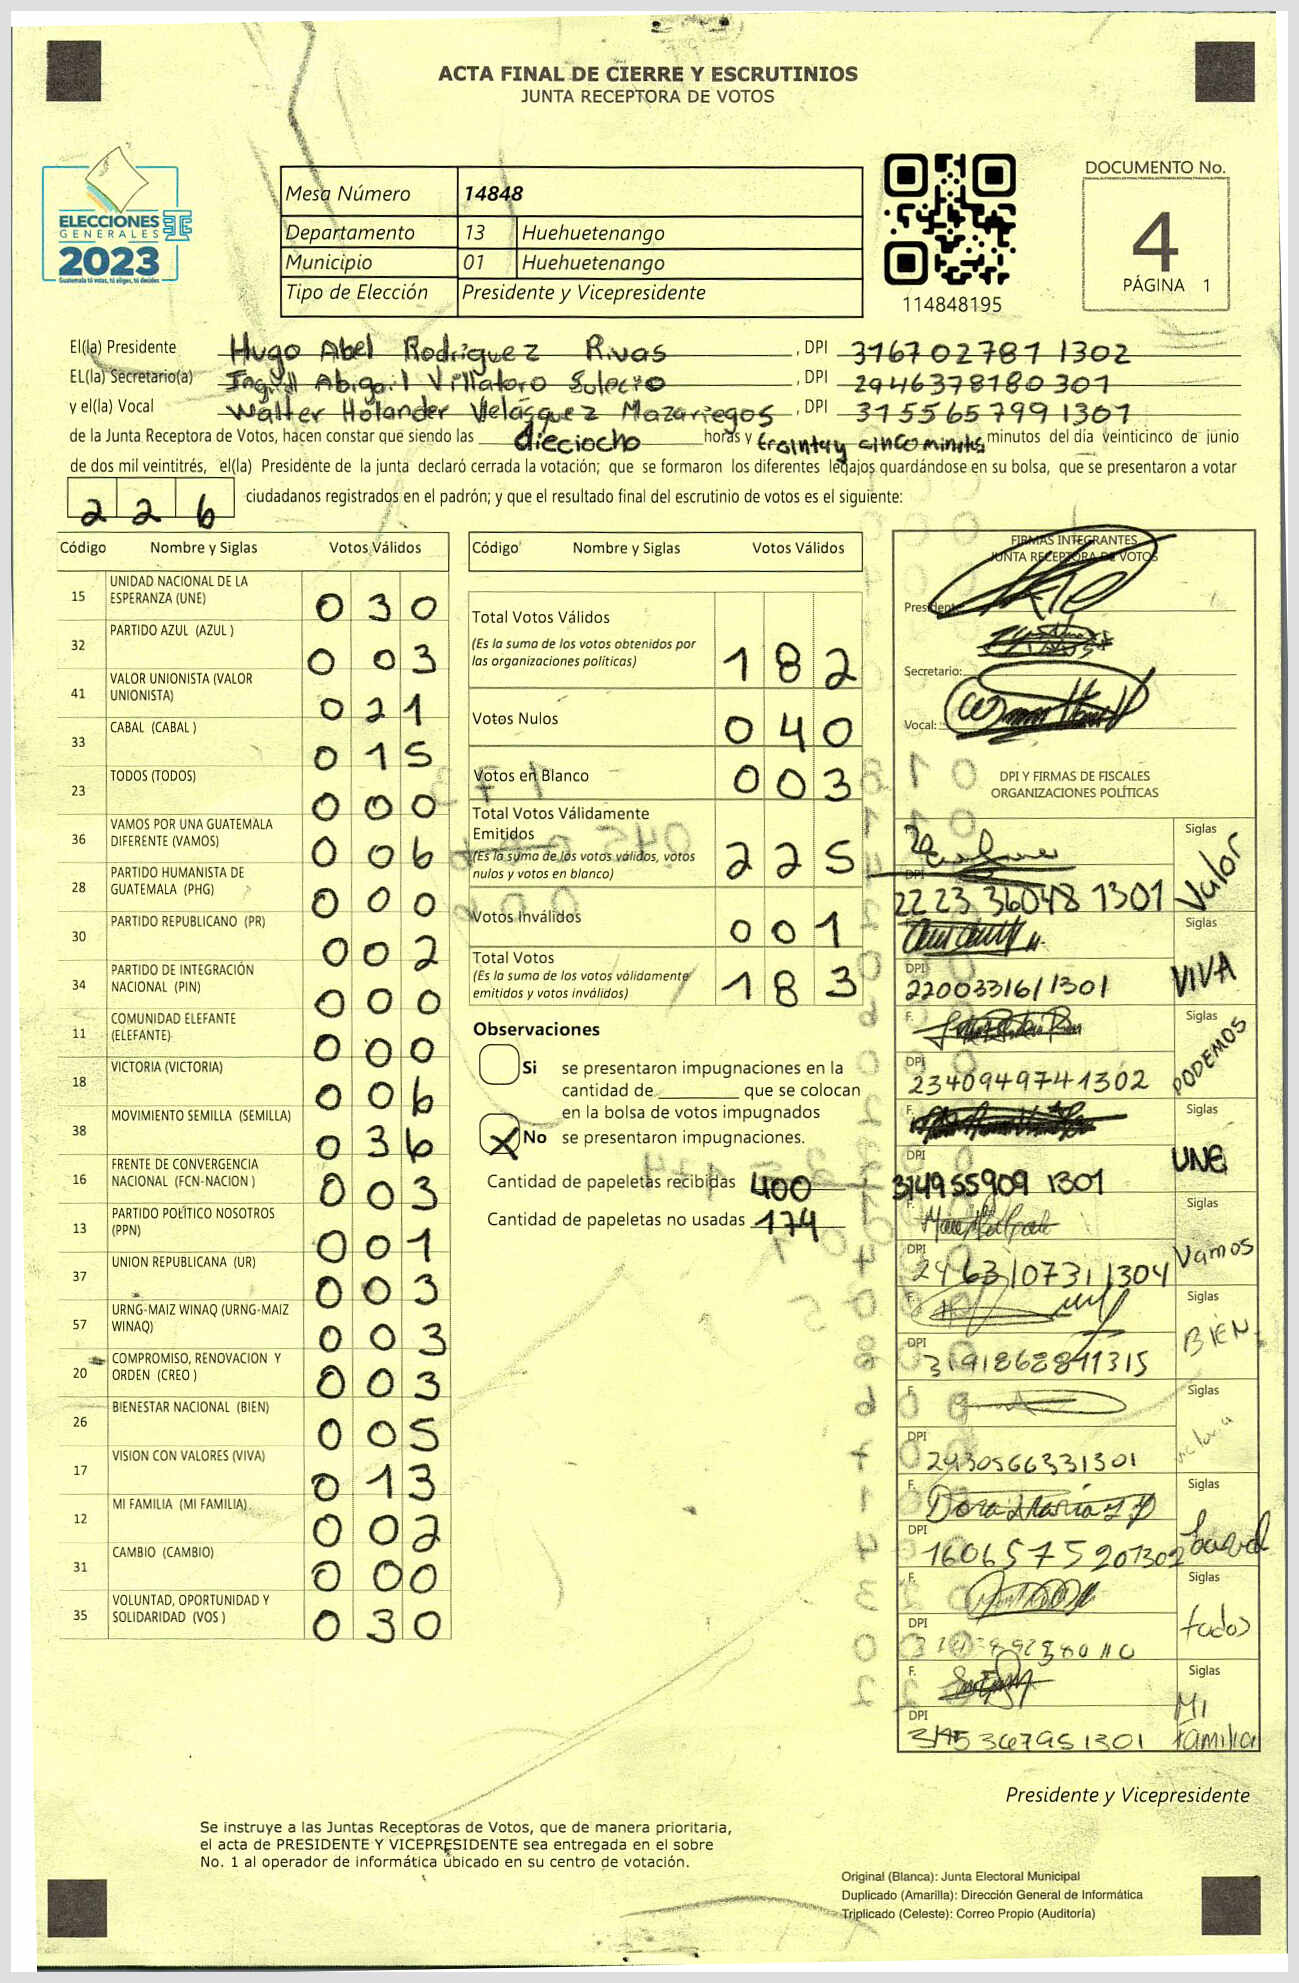 ACTA FINAL DE CIERRE Y ESCRUTINIOS
JUNTA RECEPTORA DE VOTOS
ELECCIONES
GENERALES
2023
Guatemala tú votas, tú eliges, tú decides
Mesa Número 14848
Departamento 13 Huehuetenango
Municipio 01 Huehuetenango
Tipo de Elección Presidente y Vicepresidente
114848195
DOCUMENTO No.
4
PÁGINA 1
El(la) Presidente Hugo Abel Rodriguez Rivas , DPI 316702781 1302
EL(la) Secretario(a) Abigail Villatoro , DPI 2946378180301
y el(la) Vocal Walter Holander Velásquez Mazariegos , DPI 315565799 1301
de la Junta Receptora de Votos, hacen constar que siendo las dieciocho horas y treintay cinco minutos minutos del día veinticinco de junio
de dos mil veintitrés, el(la) Presidente de la junta declaró cerrada la votación; que se formaron los diferentes legajos guardándose en su bolsa, que se presentaron a votar
226 ciudadanos registrados en el padrón; y que el resultado final del escrutinio de votos es el siguiente:
Código Nombre y Siglas Votos Válidos
15 UNIDAD NACIONAL DE LA ESPERANZA (UNE) 030
32 PARTIDO AZUL (AZUL ) 003
41 VALOR UNIONISTA (VALOR UNIONISTA) 021
33 CABAL (CABAL ) 015
23 TODOS (TODOS) 000
36 VAMOS POR UNA GUATEMALA DIFERENTE (VAMOS) 006
28 PARTIDO HUMANISTA DE GUATEMALA (PHG) 000
30 PARTIDO REPUBLICANO (PR) 002
34 PARTIDO DE INTEGRACIÓN NACIONAL (PIN) 000
11 COMUNIDAD ELEFANTE (ELEFANTE) 000
18 VICTORIA (VICTORIA) 006
38 MOVIMIENTO SEMILLA (SEMILLA) 036
16 FRENTE DE CONVERGENCIA NACIONAL (FCN-NACION ) 003
13 PARTIDO POLÍTICO NOSOTROS (PPN) 001
37 UNION REPUBLICANA (UR) 003
57 URNG-MAIZ WINAQ (URNG-MAIZ WINAQ) 003
20 COMPROMISO, RENOVACION Y ORDEN (CREO ) 003
26 BIENESTAR NACIONAL (BIEN) 005
17 VISION CON VALORES (VIVA) 013
12 MI FAMILIA (MI FAMILIA) 002
31 CAMBIO (CAMBIO) 000
35 VOLUNTAD, OPORTUNIDAD Y SOLIDARIDAD (VOS ) 030
Código Nombre y Siglas Votos Válidos
Total Votos Válidos 182
(Es la suma de los votos obtenidos por
las organizaciones políticas)
Votos Nulos 040
Votos en Blanco 003
Total Votos Válidamente
Emitidos 225
(Es la suma de los votos válidos, votos
nulos y votos en blanco)
Votos Inválidos 001
Total Votos 183
(Es la suma de los votos válidamente
emitidos y votos inválidos)
Observaciones
Si se presentaron impugnaciones en la
cantidad de ________ que se colocan
en la bolsa de votos impugnados
X No se presentaron impugnaciones.
Cantidad de papeletas recibidas 400
Cantidad de papeletas no usadas 174
FIRMAS INTEGRANTES
JUNTA RECEPTORA DE VOTOS
Presidente:
Secretario:
Vocal:
DPI Y FIRMAS DE FISCALES
ORGANIZACIONES POLÍTICAS
Siglas Valor
DPI 2223 36048 1301
Siglas VIVA
DPI 2200331611301
F. Siglas PODEMOS
DPI 2340949741302
F. Siglas UNE
DPI 314955909 1301
F. Siglas Vamos
DPI 2463107311304
F. Siglas BIEN
DPI
F. Siglas victoria
DPI 2430566331301
F. Siglas
DPI 1606575201302
F. Siglas todos
DPI
F. Siglas Mi familia
DPI
Presidente y Vicepresidente
Se instruye a las Juntas Receptoras de Votos, que de manera prioritaria,
el acta de PRESIDENTE Y VICEPRESIDENTE sea entregada en el sobre
No. 1 al operador de informática ubicado en su centro de votación.
Original (Blanca): Junta Electoral Municipal
Duplicado (Amarilla): Dirección General de Informática
Triplicado (Celeste): Correo Propio (Auditoría)